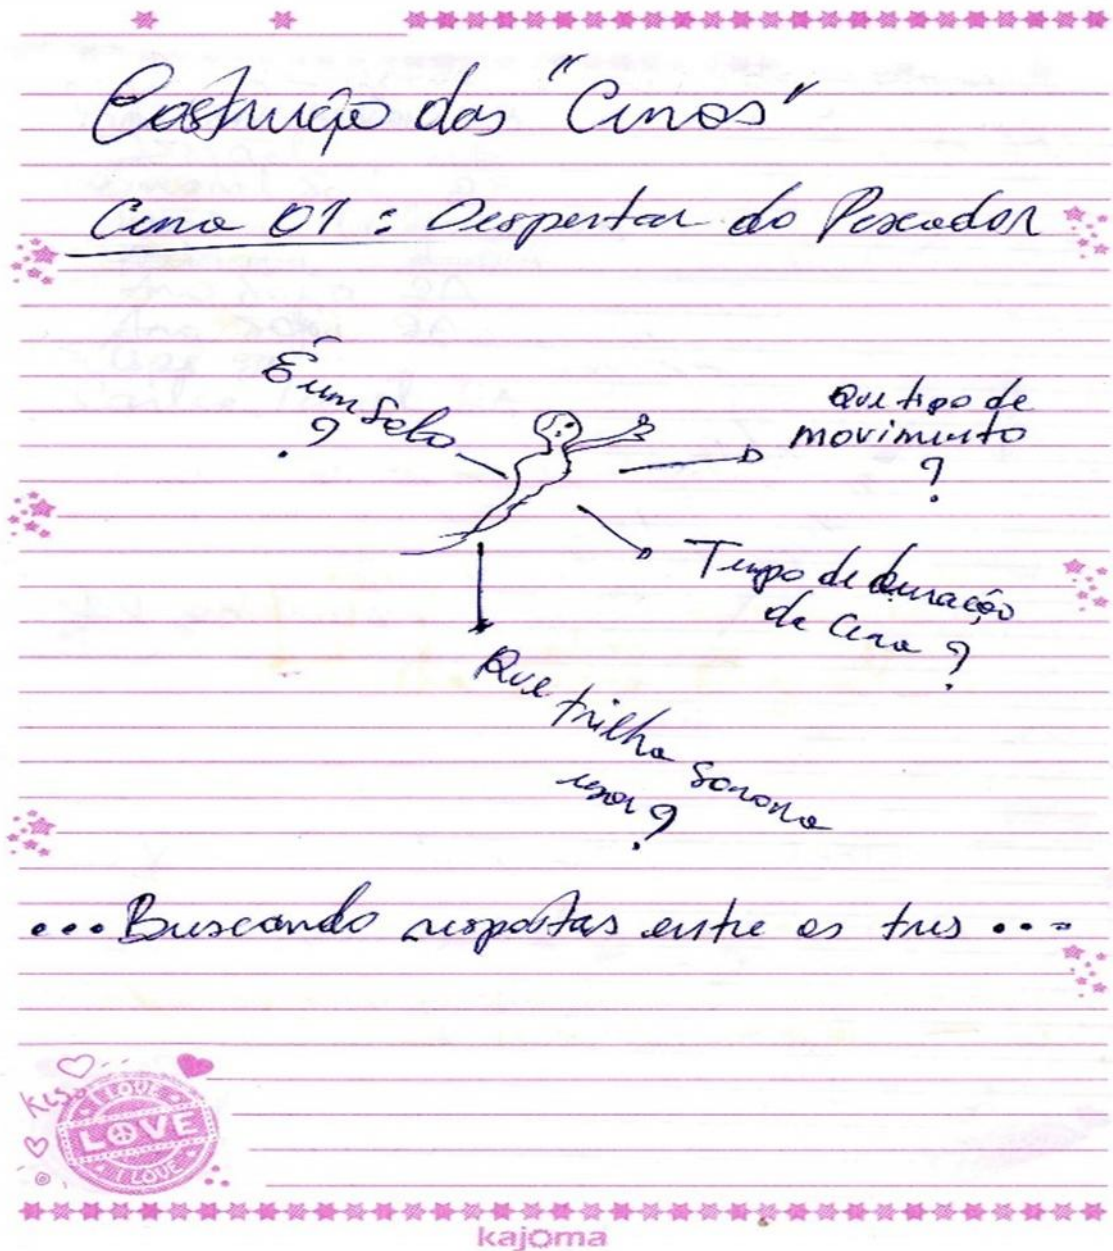 Costrução das "Cenas"
Cena 01 : Despertar do Pescador
É um Solo
?
Que tipo de
movimento
?
Tempo de duração
da Cena ?
Que trilha sonora
usar ?
... Buscando respostas entre os três ...
Kiss
I LOVE
LOVE
I LOVE
kajoma